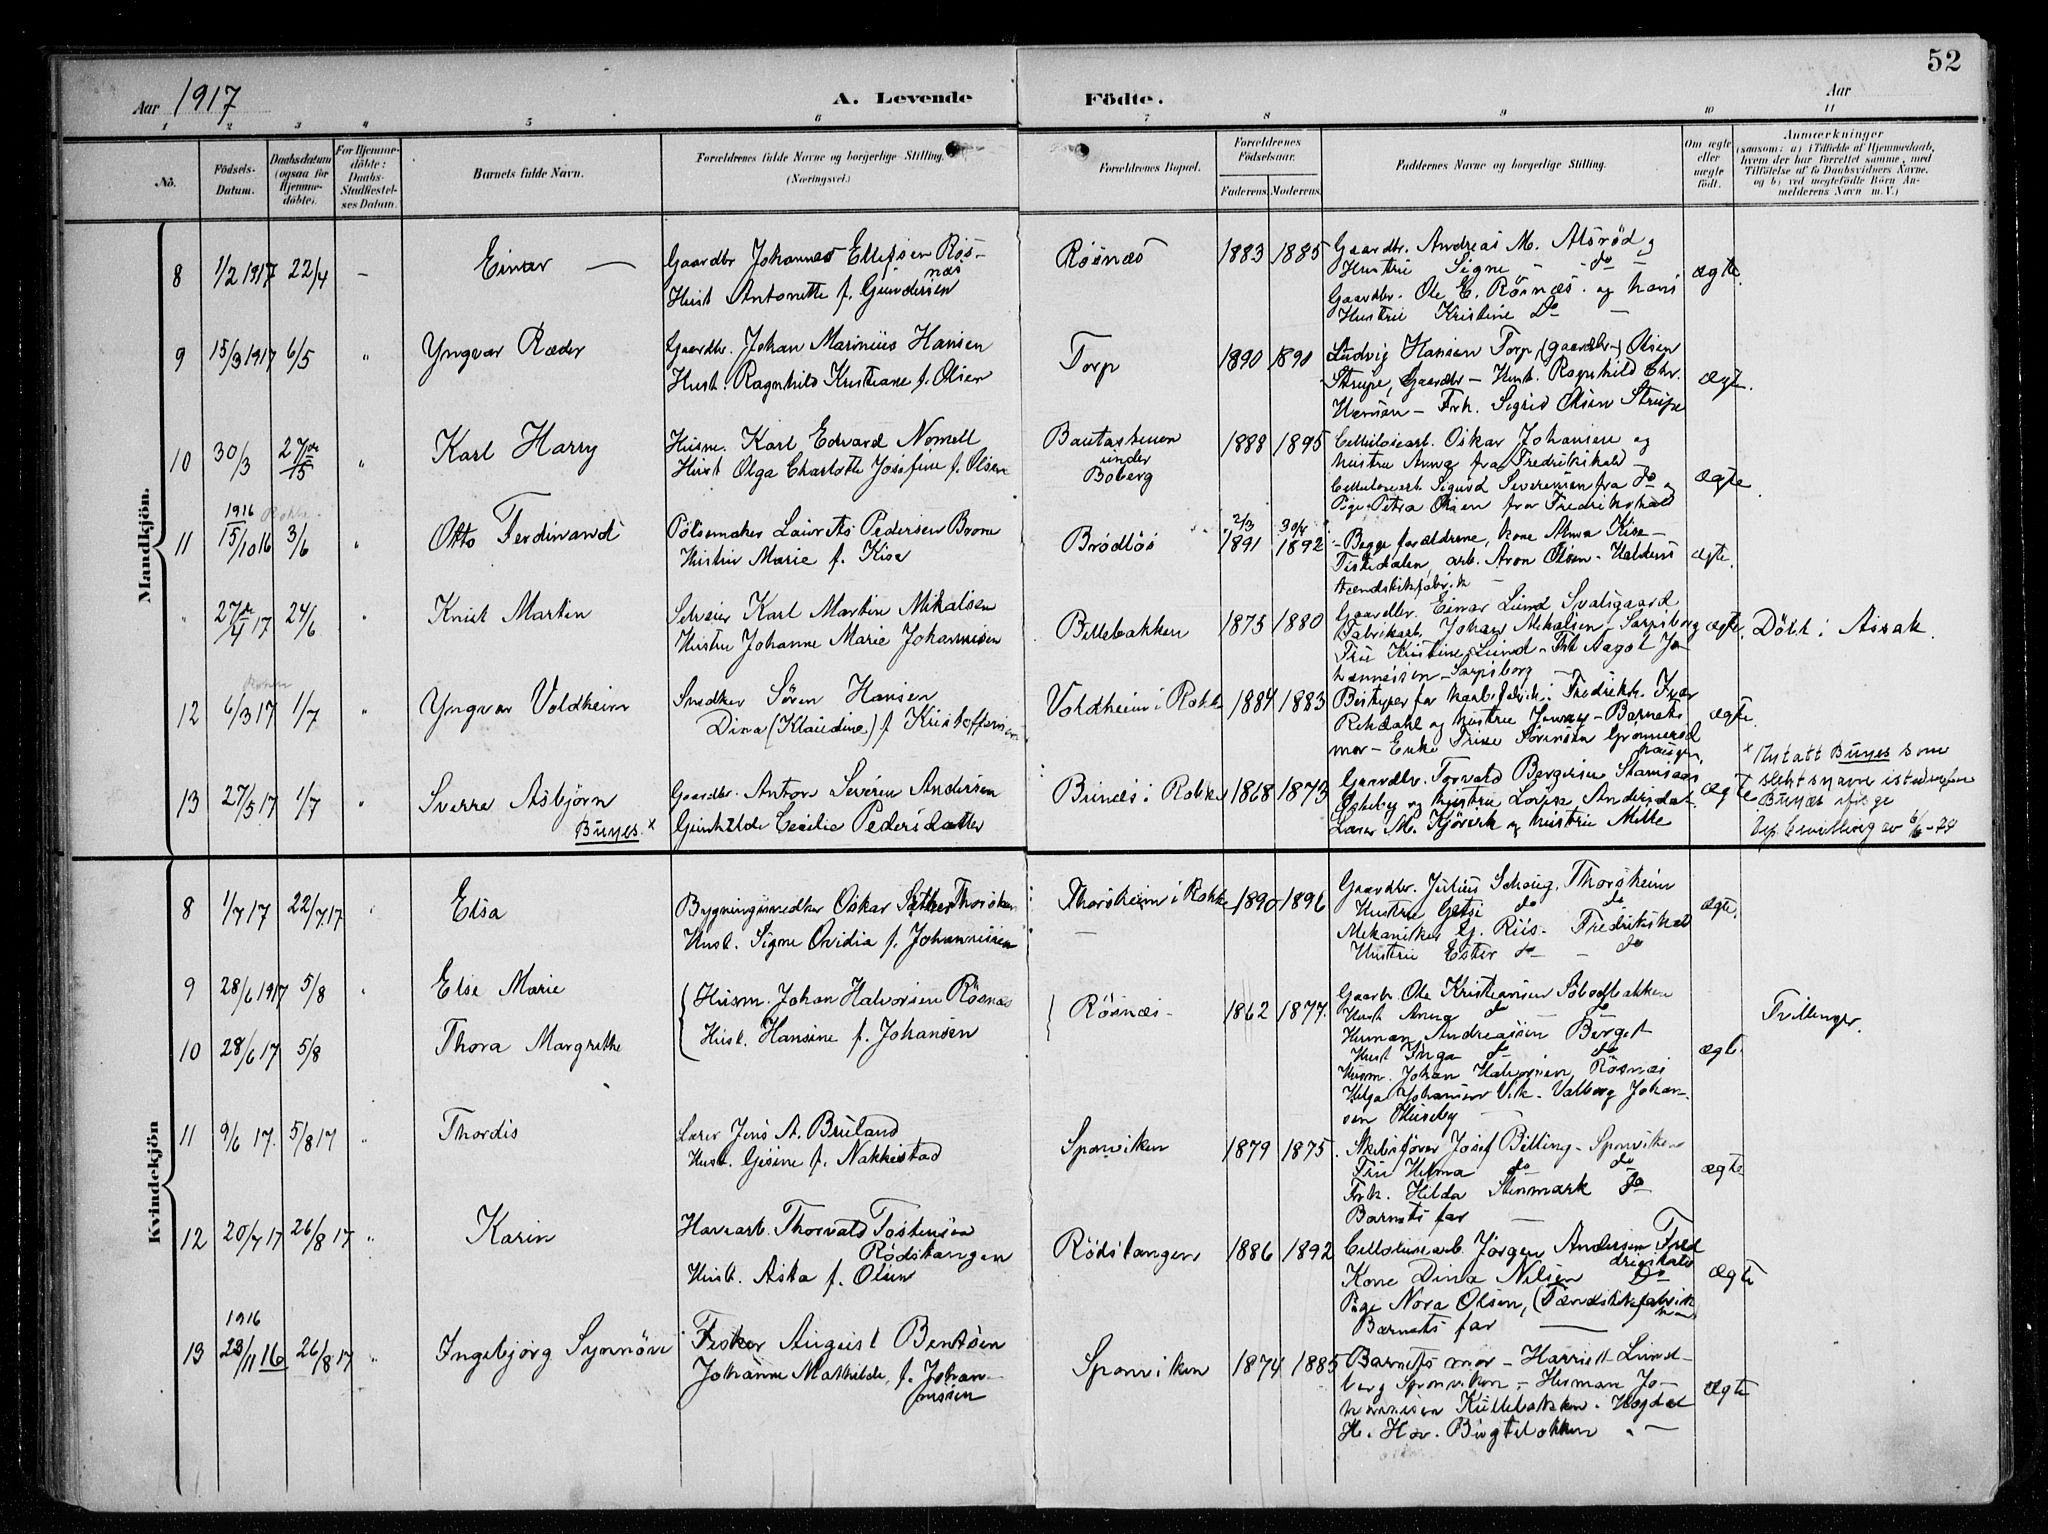 52
Aar 1917
A. Levende
Födte.
Aar
1 2 3 4 5 6 7 8 9 10 11
No.
Födsels-Datum.
Daabsdatum (ogsaa for Hjemmedöbte).
For Hjemmedöbte: Daabs-Stadfæstelses Datum.
Barnets fulde Navn.
Forældrenes fulde Navne og borgerlige Stilling.
(Næringsvei.)
Forældrenes Bopæl.
Forældrenes Födselsaar.
Faderens. Moderens.
Faddernes Navne og borgerlige Stilling.
Om ægte eller uægte födt.
Anmærkninger
(saasom: a) i Tilfælde af Hjemmedaab, hvem der har forrettet samme, med Tilföielse af to Daabsvidners Navne, og b) ved uægtefödte Börn Anmelderens Navn m. V.)
Mandkjön.
8 1/2 1917 22/4 - Einar -
Gaardbr. Johannes Ellefsen Rösnæs
Hust. Antonette f. Gundersen
Rösnæs 1883 1885
Gaardbr. Andreas M. Alsröd og
Hustru Signe - do -
Gaardbr. Ole E. Rösnæs og hans
Hustru Kristine Do -
ægte.
9 15/3 1917 6/5 " Yngvar Ræder
Gaardbr. Johan Marinius Hansen
Hust. Ragnhild Kristiane f. Olsen
Torp 1890 1890
Ludvig Hansen Torp (gaardbr-) Olsen
Strupe, Gaardbr - Hust. Ragnhild Chr.
Hansen - Frk. Sigrid Olsen Strupe
ægte.
10 30/3 27de/5 " Karl Harry
Husm. Karl Edvard Nomell
Hust Olga Charlotte Josefine f. Olsen
Bautastenen
under
Boberg
1888 1895
Cellulosearb. Oskar Johansen og
hustru Anna fra Fredrikshald
Cellulosearb. Sigurd Severinsen fra do og
Pige Petra Olsen fra Fredrikshald
ægte
1916
11 15/10 16 3/6 " Otto Ferdinand
Pölsemaker Laurits Pedersen Brone
Hustru Marie f. Kise
Brödlös
2/3 1891 1892
Begge forældrene, kone Anna Kise -
Fiskedalen, arb. Aron Olsen - Haldens
tændstikfabrik -
ægte.
" 27de/4 17 24/6 " Knut Martin
Selveier Karl Martin Mikalsen
Hustru Johanne Marie Johannesen
Billebakken 1875 1880
Gaardbr. Einar Lund Svalsgaard
Fabrikarb. Johan Mikalsen - Sarpsborg
Fru Kristine Lund - Frk Aagot Johannessen - Sarpsborg
ægte. Döbt i Assak.
12 6/3 17 1/7 " Yngvar Voldheim
Snedker Sören Hansen
Dina (Klaudine) f. Kristoffersen
Voldheim i Rokke 1884 1883
Bestyrer for Fredriksh. Ivar
Rekdahl og hustru Jenny - Barnets
mor - Enke Trine Sörensen Grönneröd
ægte.
13 27/5 17 1/7 " Sverre Asbjörn
Bunes. x
Gaardbr. Anton Severin Andersen
Gunhilde Cecilie Pedersdatter
Bunæs i Rokke 1868 1873
Gaardbr. Torvald Bergersen
og hustru Lovise Andersdat.
M. Kjöverk og hustru Milla
ægte
x Instatt Bunes som
slektsnavn istedenfor
Bunæs ifölge
Dep. bevilling av 6/6-24
Kvindekjön
8 1/7 17 22/7.17 " Elsa
Bygningssnedker Oskar Sæther Thorsheim
Hust. Signe Ovidia f. Johannessen
Thorsheim i Rokke 1890 1896
Gaardbr. Julius Schaug, Thorsheim
Hustru Getsi do do
Mekaniker G. Riis - Fredrikshald
Hustru Ester do - do
ægte.
9 28/6 1917 5/8 " Else Marie
Husm. Johan Halvorsen Rösnæs
Hust. Hansine f. Johansen
10 28/6 17 5/8 Thora Margrethe
Rösnæs - 1862 1877.
Gaarbr. Ole Kristiansen Söbodbakken
Hust Anna do do
Husman Andreassen Berget
Hust Inga do do
Husm. Johan Halvorsen, Rösnæs
Helga Johansen Vik - Valborg Johansen Huseby -
ægte.
Tvillinger.
11 9/6 17. 5/8 17 " Thordis
Lærer Jens A. Bruland
Hust. Gesine f. Nakkestad
Sponviken 1879 1875
Skibsförer Josef Billing - Sponviken
Fru Helma do do
Frk. Hilda Stenmark do
Barnets far -
ægte
12 20/7 17 26/8 17 " Karin
Havnearb. Thorvald Tostensen
Rödstangen
Hust. Aska f. Olsen
Rödstangen 1886 1892
Cellulosearb. Jörgen Andersen Fredrikshald
Kone Dina Nilsen Do
Pige Nora Olsen, (Tændstikfabrik
Barnets far -
ægte
1916
13 23/11 16 26/8 17 " Ingebjörg Synnöve
Fisker August Bentsen
Johanne Mathilde, f. Johannssen
Sponviken 1874 1885
Barnets mor - Harriett Lundberg Sponviken - Husman Johannesen Kullebakken - Hagdal
H. Hov. Bugtebakken -
ægte